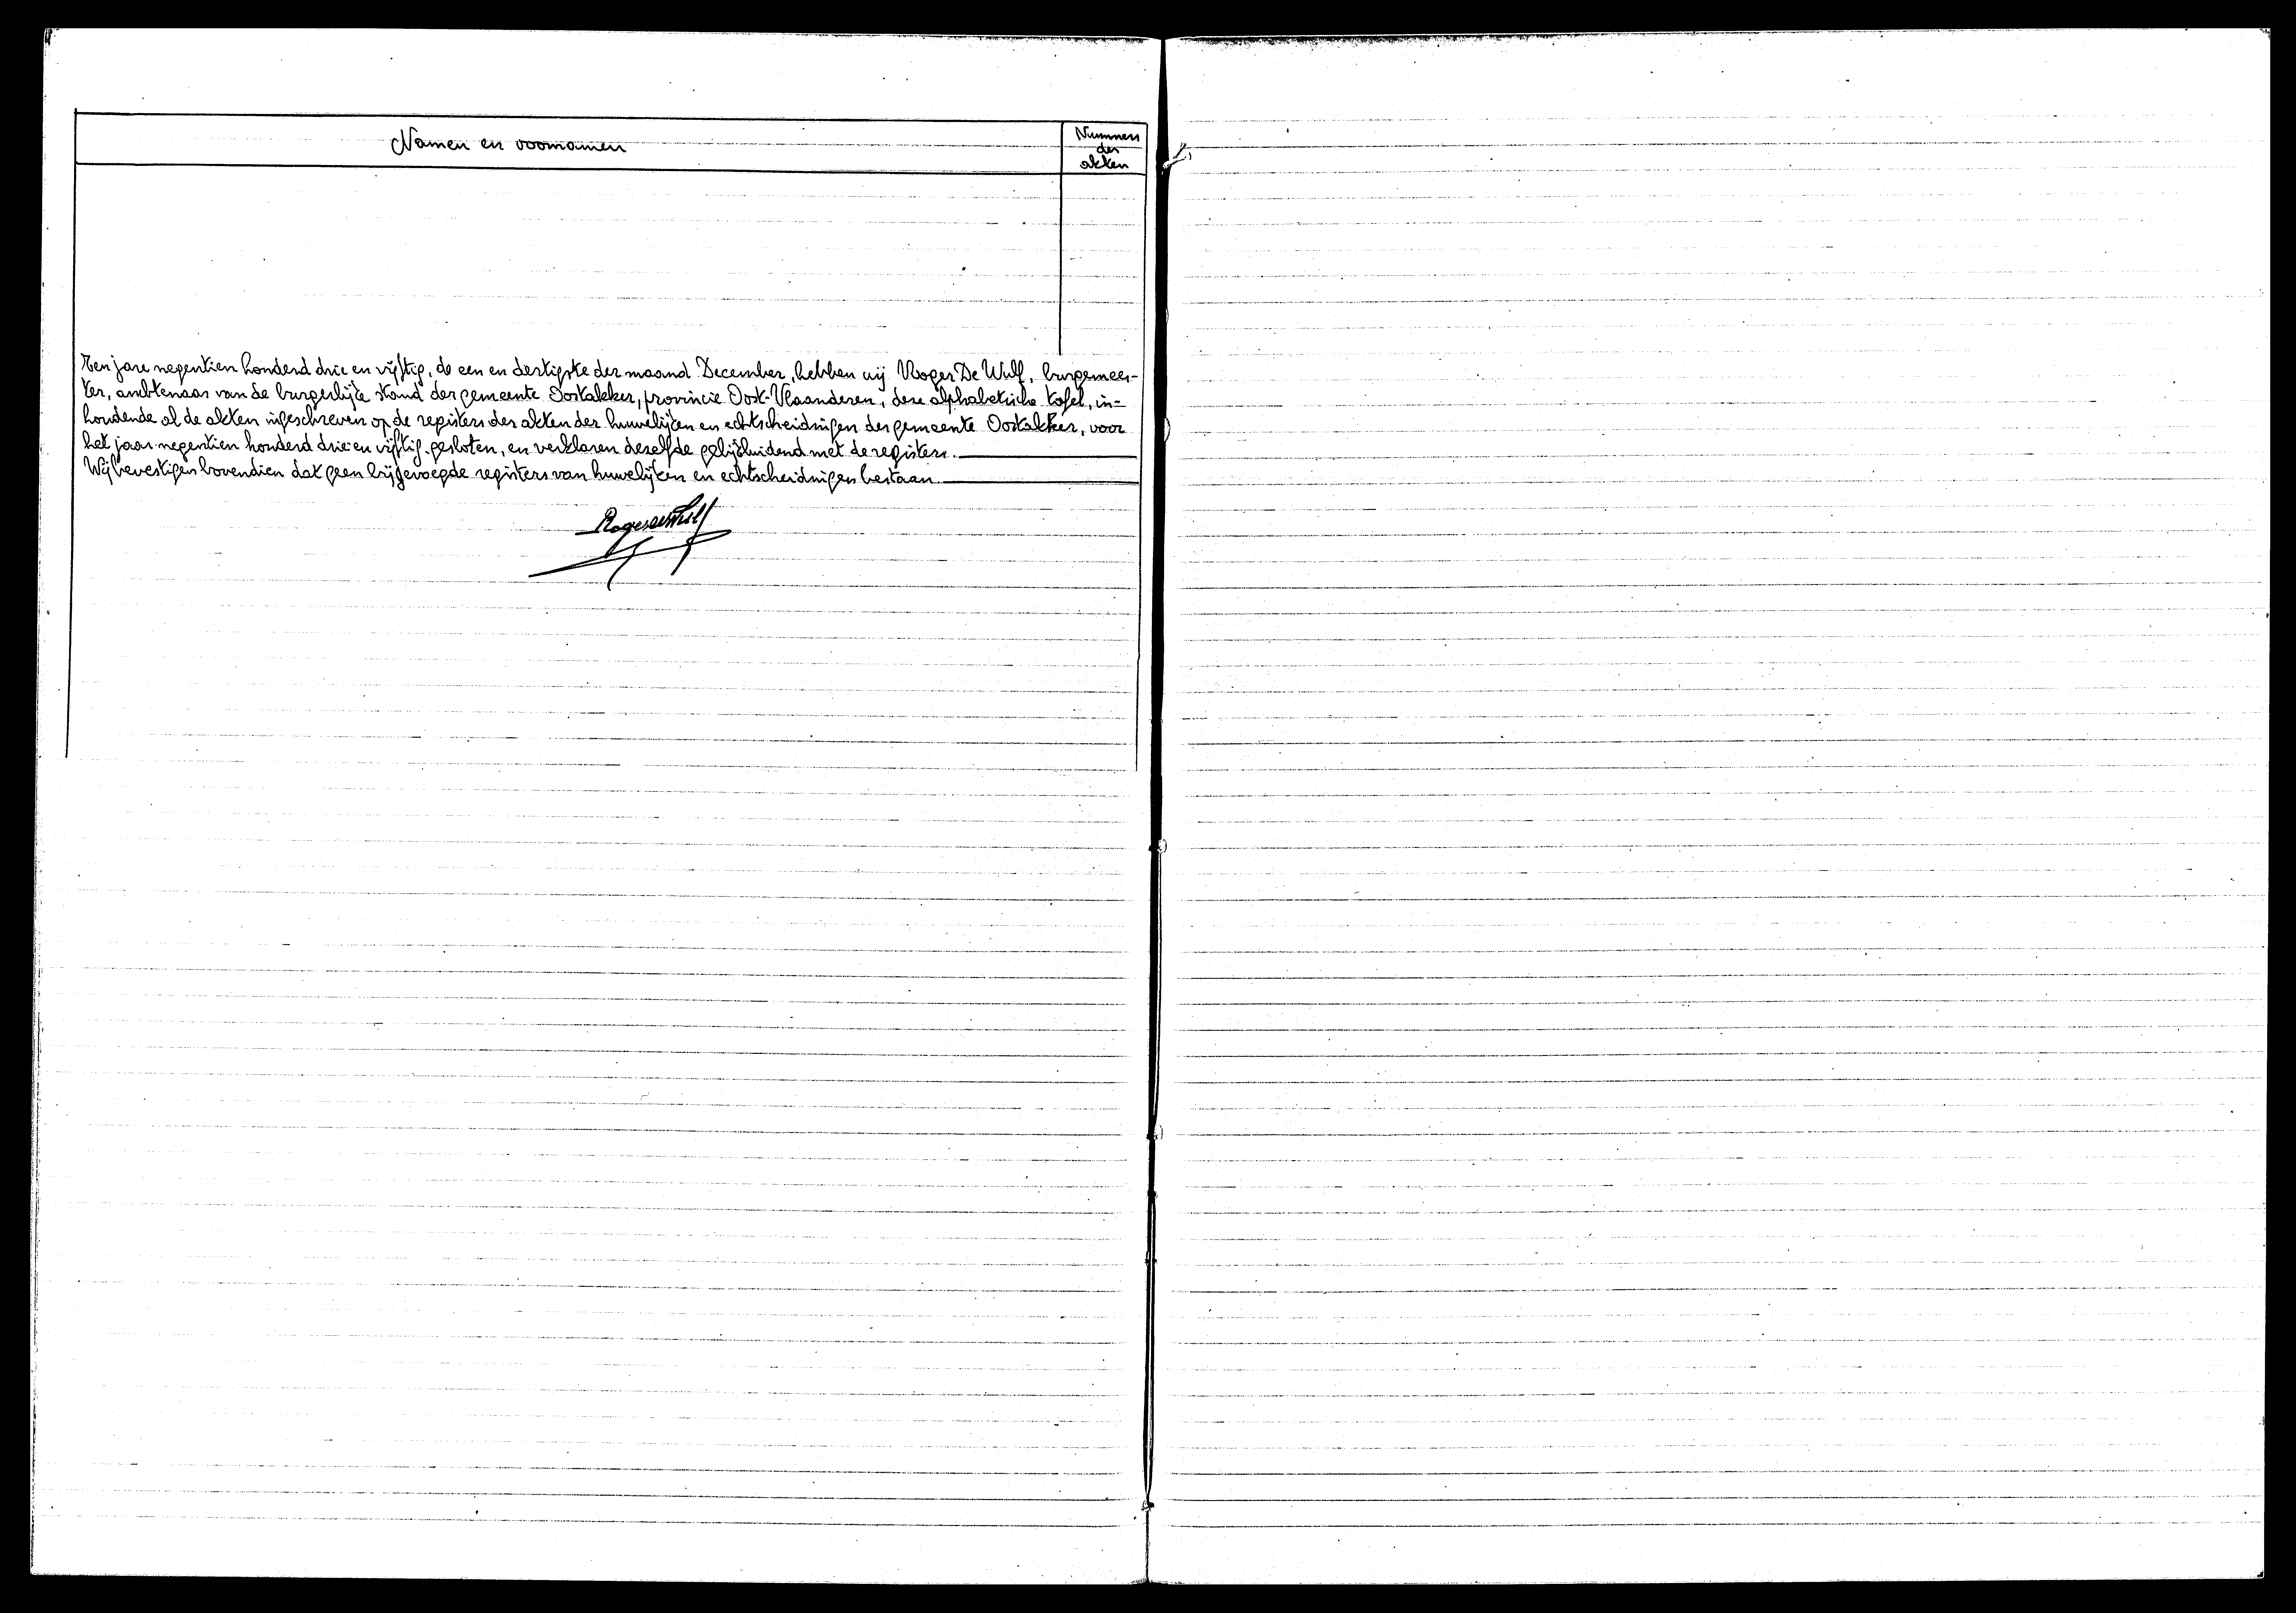 Namen en voornamen
Nummers
der
akten
Ten jare negentien honderd drie en vijftig, de een en dertigste der maand December, hebben wij Roger De Wulf, burgemees-
ter, ambtenaar van de burgerlijke stand der gemeente Oostakker, provincie Oost-Vlaanderen, deze alphabetische tafel, in-
houdende al de akten ingeschreven op de registers der akten der huwelijken en echtscheidingen der gemeente Oostakker, voor
het jaar negentien honderd drie en vijftig gesloten, en verklaren dezelfde gelijkluidend met de registers.
Wij bevestigen bovendien dat geen bijgevoegde registers van huwelijken en echtscheidingen bestaan.
Roger De Wulf